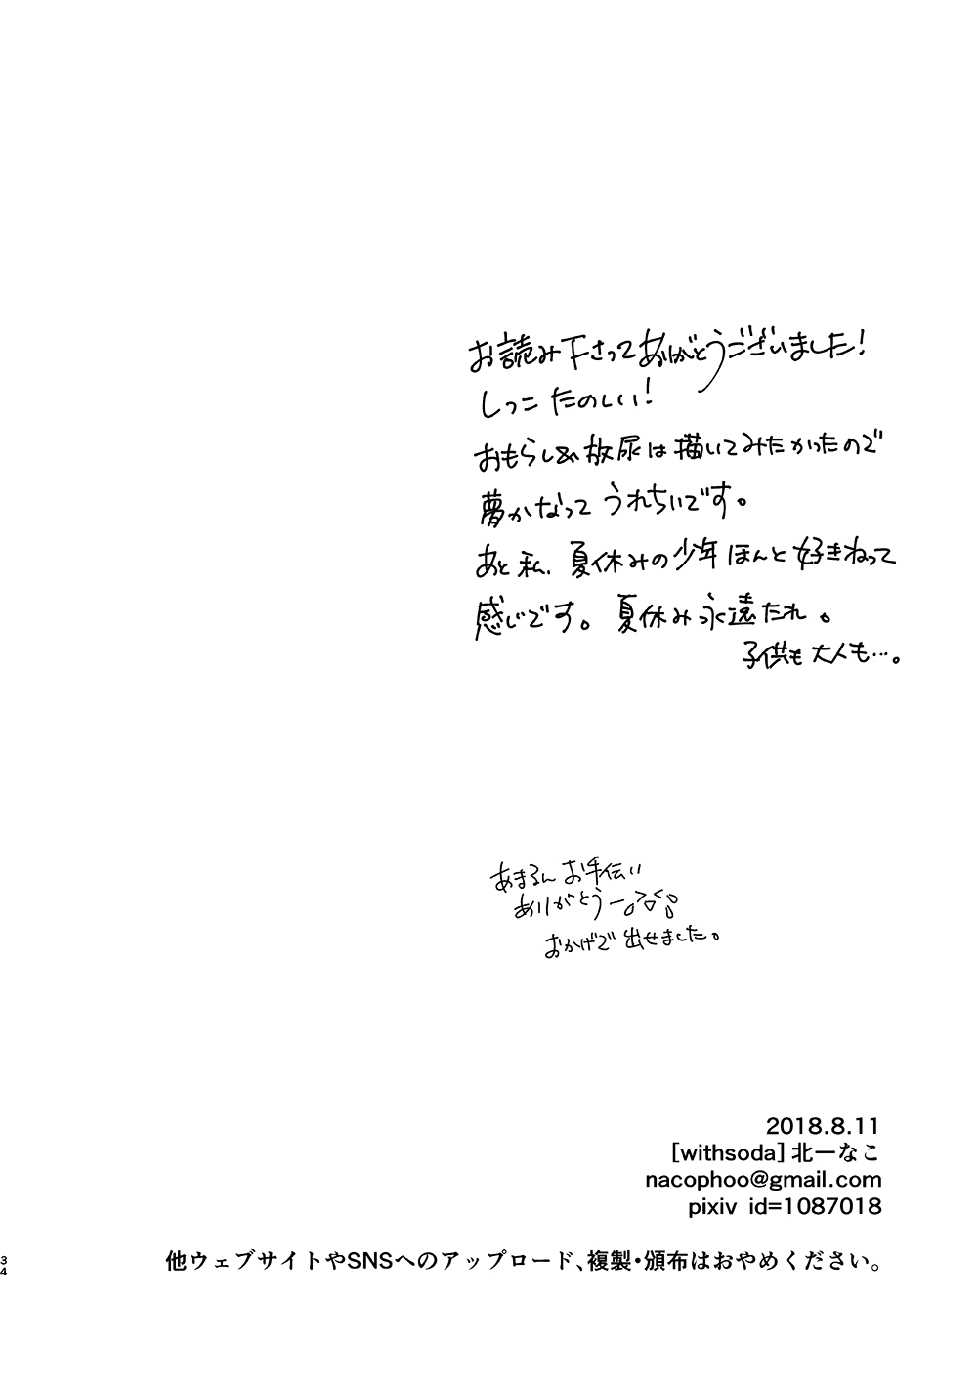 お読み下さってありがとうございました!
しっこ たのしい!
おもらし&放尿は描いてみたかったので
夢かなって うれちいです。
あと 私、夏休みの少年 ほんと 好きねって
感じです。夏休み永遠たれ。
子供も 大人も…。
あまるん お手伝い
ありがとうー
おかげで 出せました。
2018.8.11
[withsoda]北一なこ
nacophoo@gmail.com
pixiv id=1087018
他ウェブサイトやSNSへのアップロード、複製・頒布はおやめください。
34